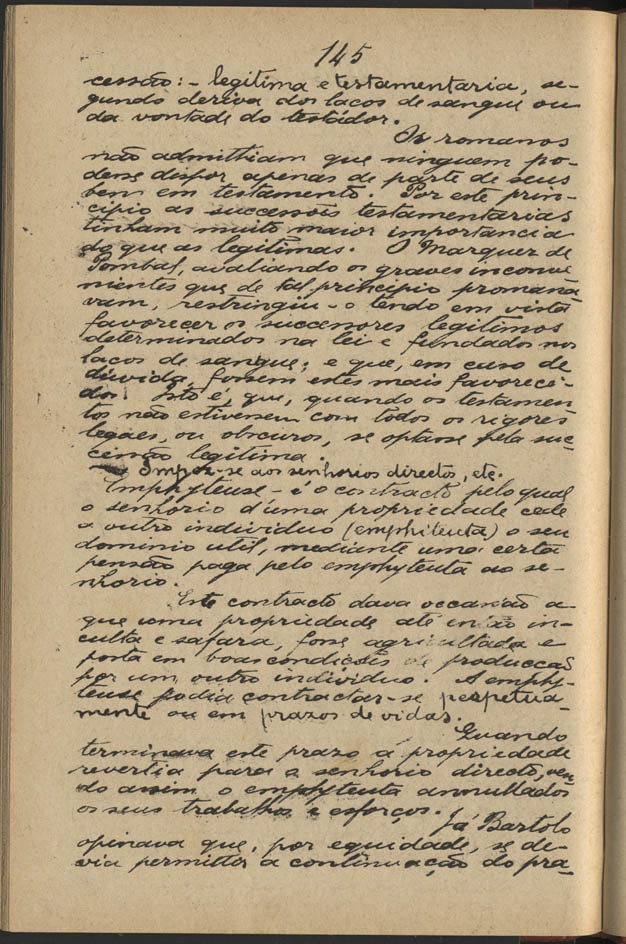 145
cessão:- legitima e testamentaria, se-
gundo deriva dos laços de sangue ou
da vontade do testádor.
Os romanos
não admittiam que ninguem po-
desse dispor apenas de parte de seus
bens em testamento. Por este prin-
cipio as successões testamentarias
tinham muito maior importancia
do que as legitimas. O Marquez de
Pombal, avaliando os graves inconve
nientes que de tal principio promana-
vam, restringiu-o tendo em vista
favorecer os successores legitimos
determinados na lei e fundados nos
laços de sangue; e que, em caso de
duvida, fossem estes mais favoreci-
dos. Isto é, que, quando os testamen-
tos não estivessem com todos os rigores
legaes, ou obscuros, se optasse pela suc-
cessão legitima.
Impoz-se aos senhorios directos, etc.
Emphyteuse - é o contracto pelo qual
o senhorio d'uma propriedade cede
a outro individuo (emphiteuta) o seu
dominio util, mediante uma certa
pensão paga pelo emphyteuta ao se-
nhorio.
Este contracto dava occasião a
que uma propriedade até então in-
culta e safara, fosse agricultada e
posta em boas condições de producção
por um outro individuo. A emphy-
teuse podia contractar-se perpetua-
mente ou em prazos de vidas.
Quando
terminava este prazo a propriedade
revertia para o senhorio directo, ven
do assim o emphyteuta annullados
os seus trabalhos e esforços.
Já Bartolo
opinava que, por equidade, se de-
via permittir a continuação do pra-